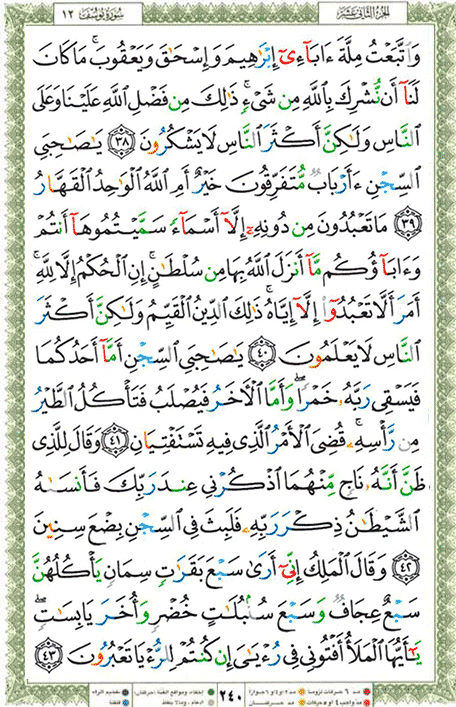 الجزء الثاني عشر
سورة يوسف ١٢
وَاتَّبَعْتُ مِلَّةَ ءَابَآءِىٓ إِبْرَٰهِيمَ وَإِسْحَٰقَ وَيَعْقُوبَ ۚ مَا كَانَ
لَنَآ أَن نُّشْرِكَ بِاللَّهِ مِن شَىْءٍ ۚ ذَٰلِكَ مِن فَضْلِ اللَّهِ عَلَيْنَا وَعَلَى
النَّاسِ وَلَٰكِنَّ أَكْثَرَ النَّاسِ لَا يَشْكُرُونَ ٣٨ يَٰصَٰحِبَىِ
السِّجْنِ ءَأَرْبَابٌ مُّتَفَرِّقُونَ خَيْرٌ أَمِ اللَّهُ الْوَٰحِدُ الْقَهَّارُ
٣٩ مَا تَعْبُدُونَ مِن دُونِهِۦٓ إِلَّآ أَسْمَآءً سَمَّيْتُمُوهَآ أَنتُمْ
وَءَابَآؤُكُم مَّآ أَنزَلَ اللَّهُ بِهَا مِن سُلْطَٰنٍ ۚ إِنِ الْحُكْمُ إِلَّا لِلَّهِ ۚ
أَمَرَ أَلَّا تَعْبُدُوٓا۟ إِلَّآ إِيَّاهُ ۚ ذَٰلِكَ الدِّينُ الْقَيِّمُ وَلَٰكِنَّ أَكْثَرَ
النَّاسِ لَا يَعْلَمُونَ ٤٠ يَٰصَٰحِبَىِ السِّجْنِ أَمَّآ أَحَدُكُمَا
فَيَسْقِى رَبَّهُۥ خَمْرًا ۖ وَأَمَّا الْءَاخَرُ فَيُصْلَبُ فَتَأْكُلُ الطَّيْرُ
مِن رَّأْسِهِۦ ۚ قُضِىَ الْأَمْرُ الَّذِى فِيهِ تَسْتَفْتِيَانِ ٤١ وَقَالَ لِلَّذِى
ظَنَّ أَنَّهُۥ نَاجٍ مِّنْهُمَا اذْكُرْنِى عِندَ رَبِّكَ فَأَنسَىٰهُ
الشَّيْطَٰنُ ذِكْرَ رَبِّهِۦ فَلَبِثَ فِى السِّجْنِ بِضْعَ سِنِينَ
٤٢ وَقَالَ الْمَلِكُ إِنِّىٓ أَرَىٰ سَبْعَ بَقَرَٰتٍ سِمَانٍ يَأْكُلُهُنَّ
سَبْعٌ عِجَافٌ وَسَبْعَ سُنۢبُلَٰتٍ خُضْرٍ وَأُخَرَ يَابِسَٰتٍ ۖ
يَٰٓأَيُّهَا الْمَلَأُ أَفْتُونِى فِى رُءْيَٰىَ إِن كُنتُمْ لِلرُّءْيَا تَعْبُرُونَ ٤٣
٢٤٠